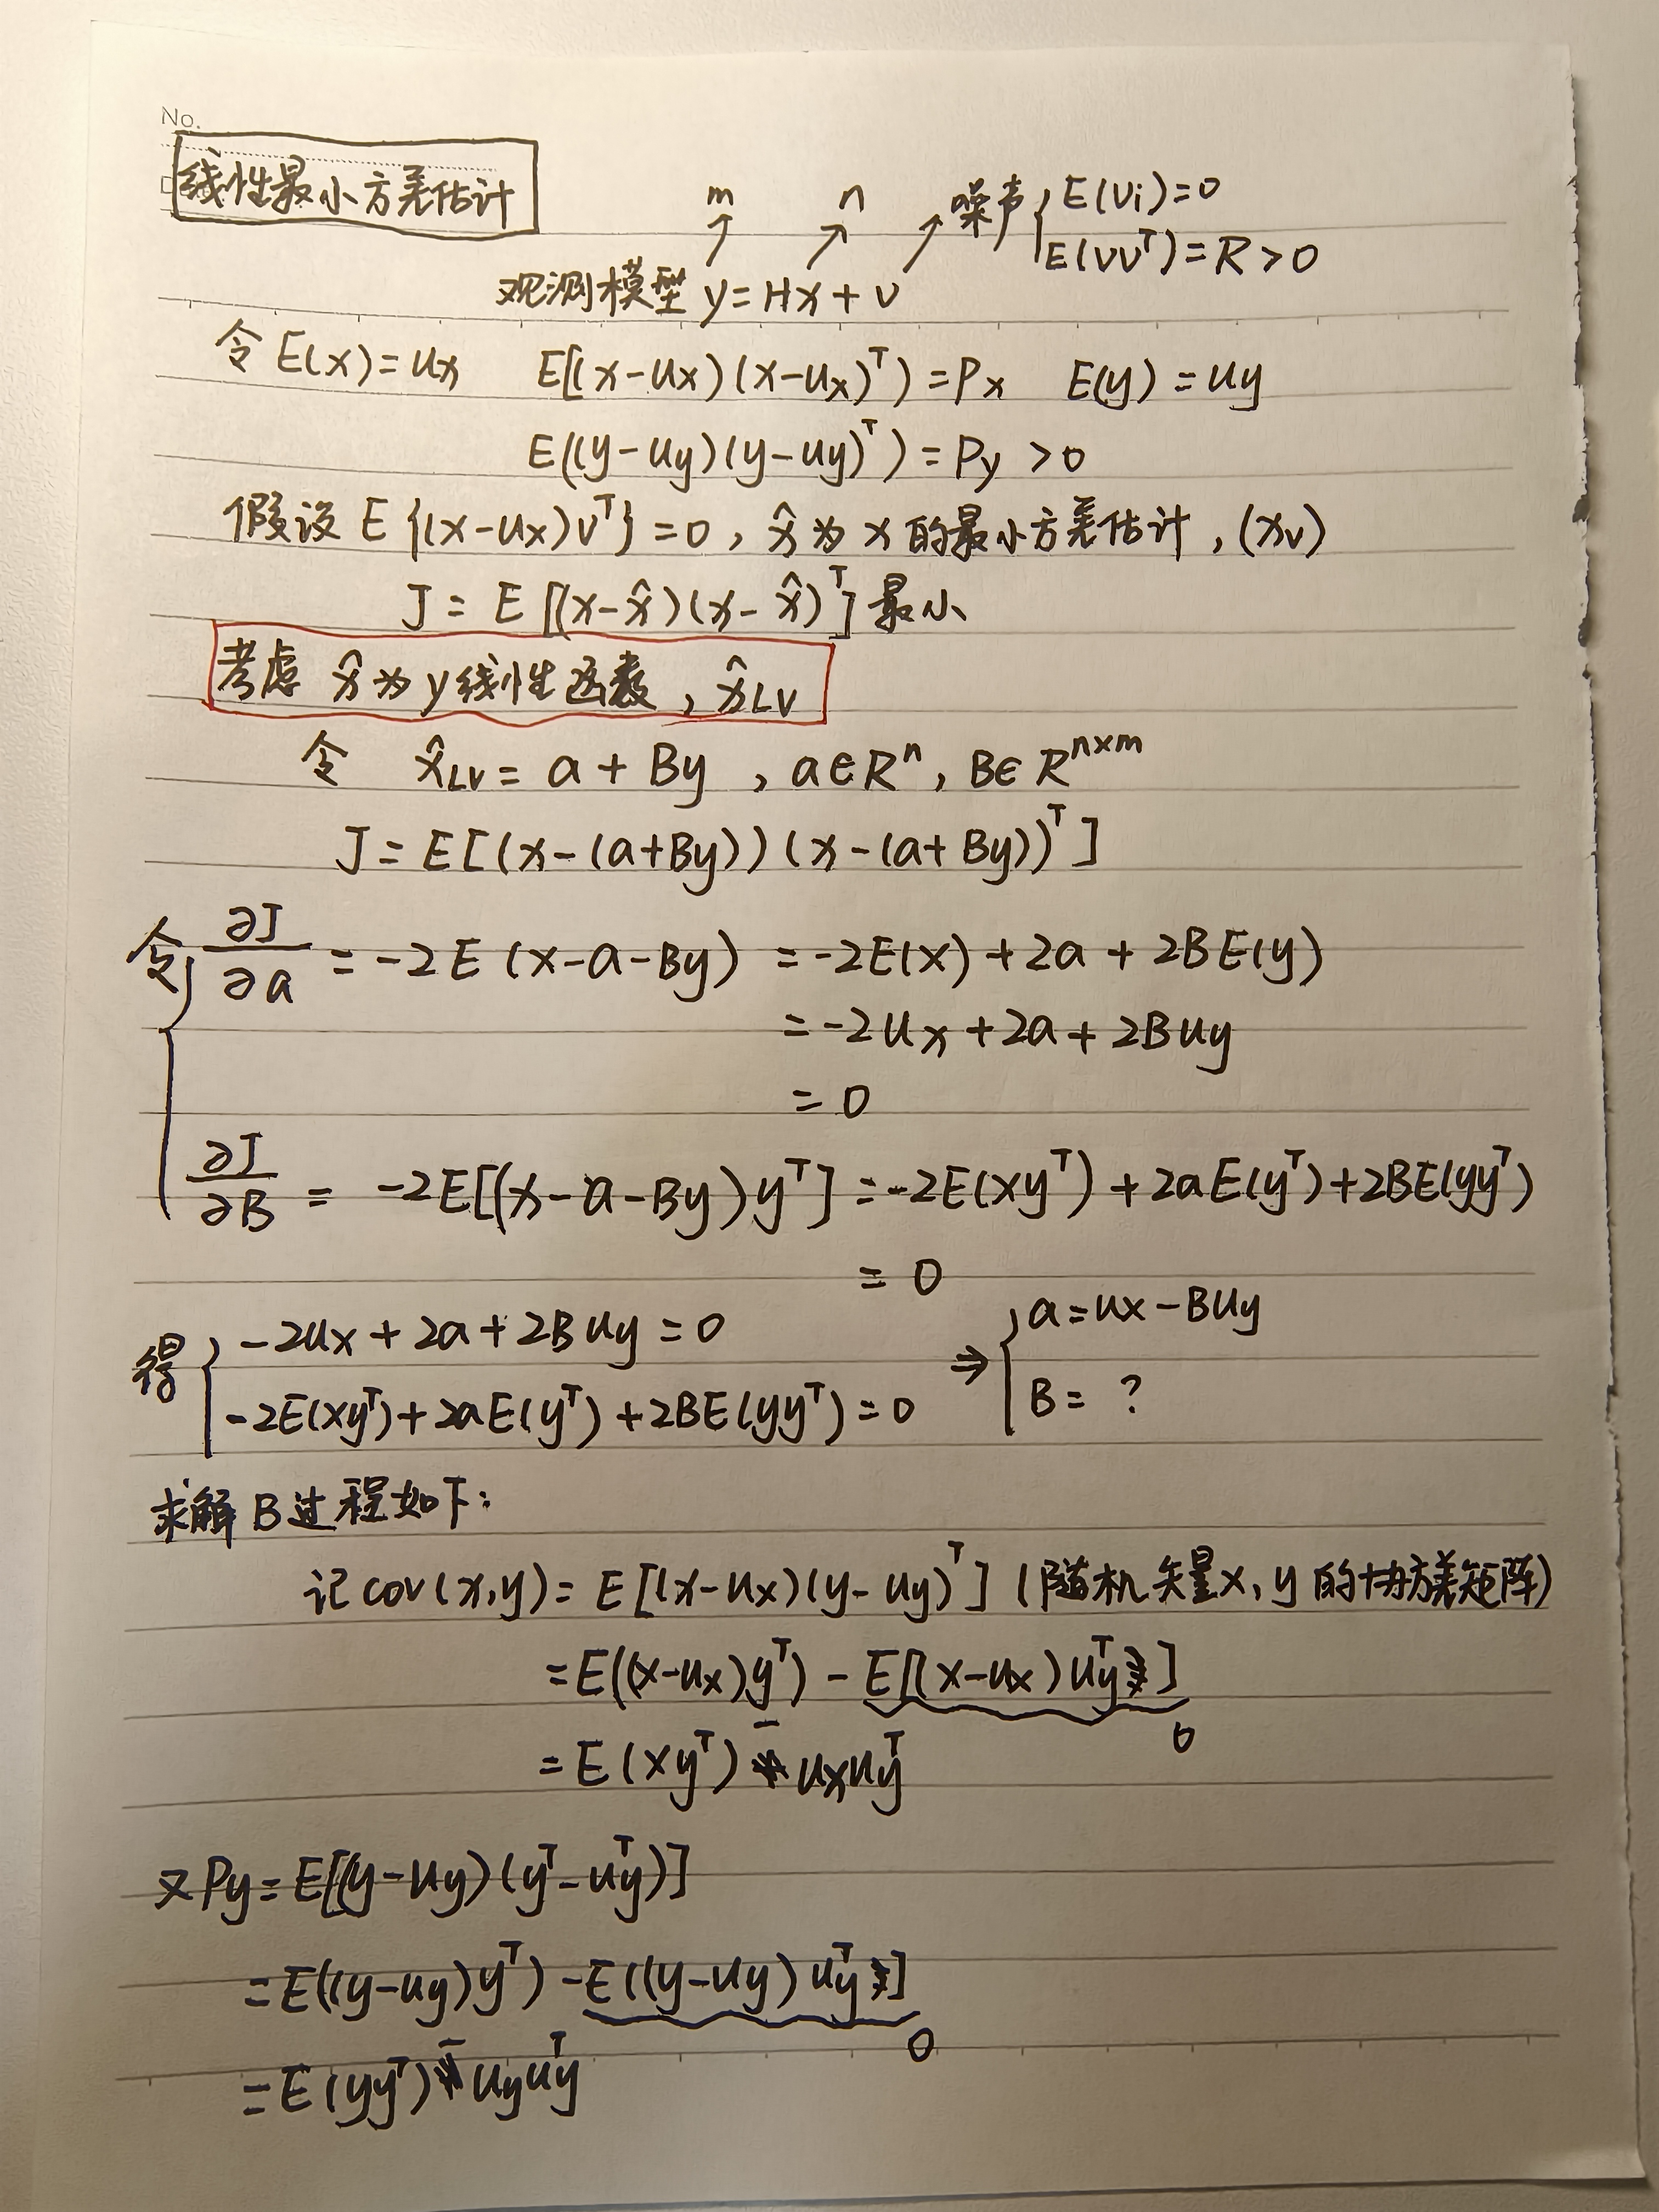 No.
线性最小方差估计
m n 噪声 { E(Vi)=0
E(VVᵀ)=R>0
观测模型 y=Hx+v
令 E(x)=ux E[(x-ux)(x-ux)ᵀ)=Px E(y)=uy
E((y-uy)(y-uy)ᵀ)=Py>0
假设 E{(x-ux)vᵀ}=0, x̂为x的最小方差估计, (xv)
J=E[(x-x̂)(x-x̂)ᵀ]最小
考虑 x̂为y线性函数, x̂LV
令 x̂LV=a+By, a∈Rⁿ, B∈Rⁿˣᵐ
J=E[(x-(a+By))(x-(a+By))ᵀ]
令 { ∂J/∂a = -2E(x-a-By) = -2E(x)+2a+2BE(y)
= -2ux+2a+2Buy
= 0
∂J/∂B = -2E[(x-a-By)yᵀ] = -2E(xyᵀ)+2aE(yᵀ)+2BE(yyᵀ)
= 0
得 { -2ux+2a+2Buy=0 ⇒ { a=ux-Buy
-2E(xyᵀ)+2aE(yᵀ)+2BE(yyᵀ)=0 B= ?
求解B过程如下:
记cov(x,y)=E[(x-ux)(y-uy)ᵀ] (随机矢量x,y的协方差矩阵)
=E((x-ux)yᵀ)-E[(x-ux)uyᵀ]
0
=E(xyᵀ)-uxuyᵀ
又Py=E[(y-uy)(yᵀ-uyᵀ)]
=E((y-uy)yᵀ)-E((y-uy)uyᵀ]
0
=E(yyᵀ)-uyuyᵀ